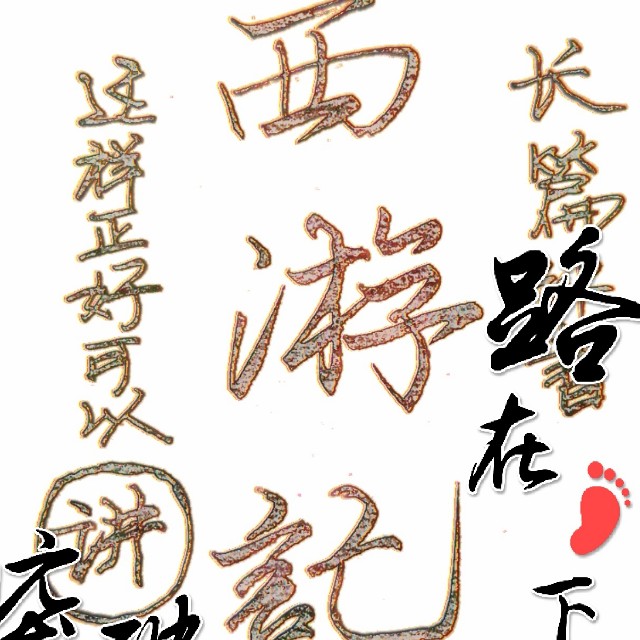 长篇
路在下
西游記
这样正好可以讲